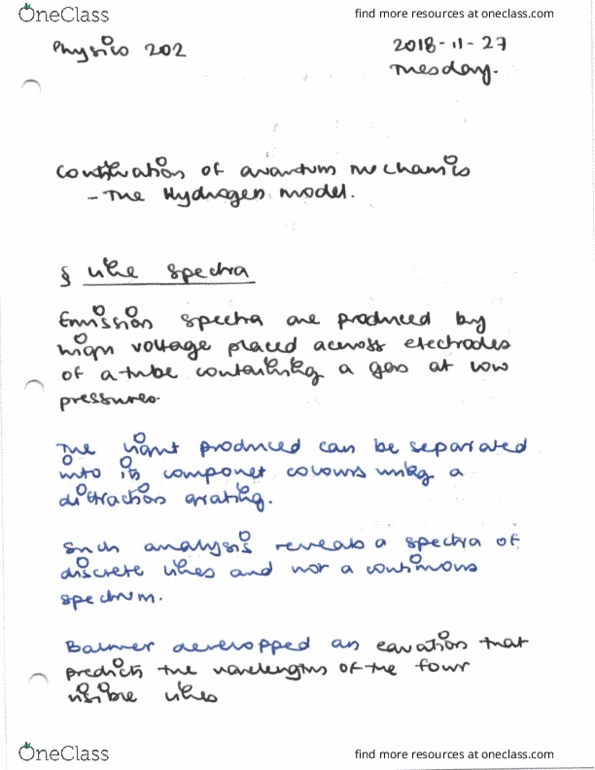 OneClass
find more resources at oneclass.com
Physics 202
2018-11-27
Tuesday.
Continuation of Quantum Mechanics
- The Hydrogen model.
§ Line spectra
Emission spectra are produced by
high voltage placed across electrodes
of a tube containing a gas at low
pressures.
The light produced can be separated
into its componet colours using a
diffraction grating.
Such analysis reveals a spectra of
discrete lines and not a continous
spectrum.
Balmer developped an equation that
predicts the wavelengths of the four
visible lines
OneClass
find more resources at oneclass.com